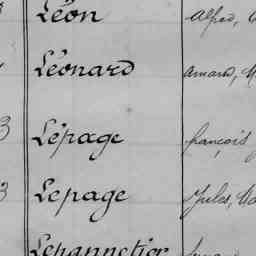 Léon Alfred,
Léonard Amand,
3 Lépage François
3 Lepage Jules,
Lepannetier